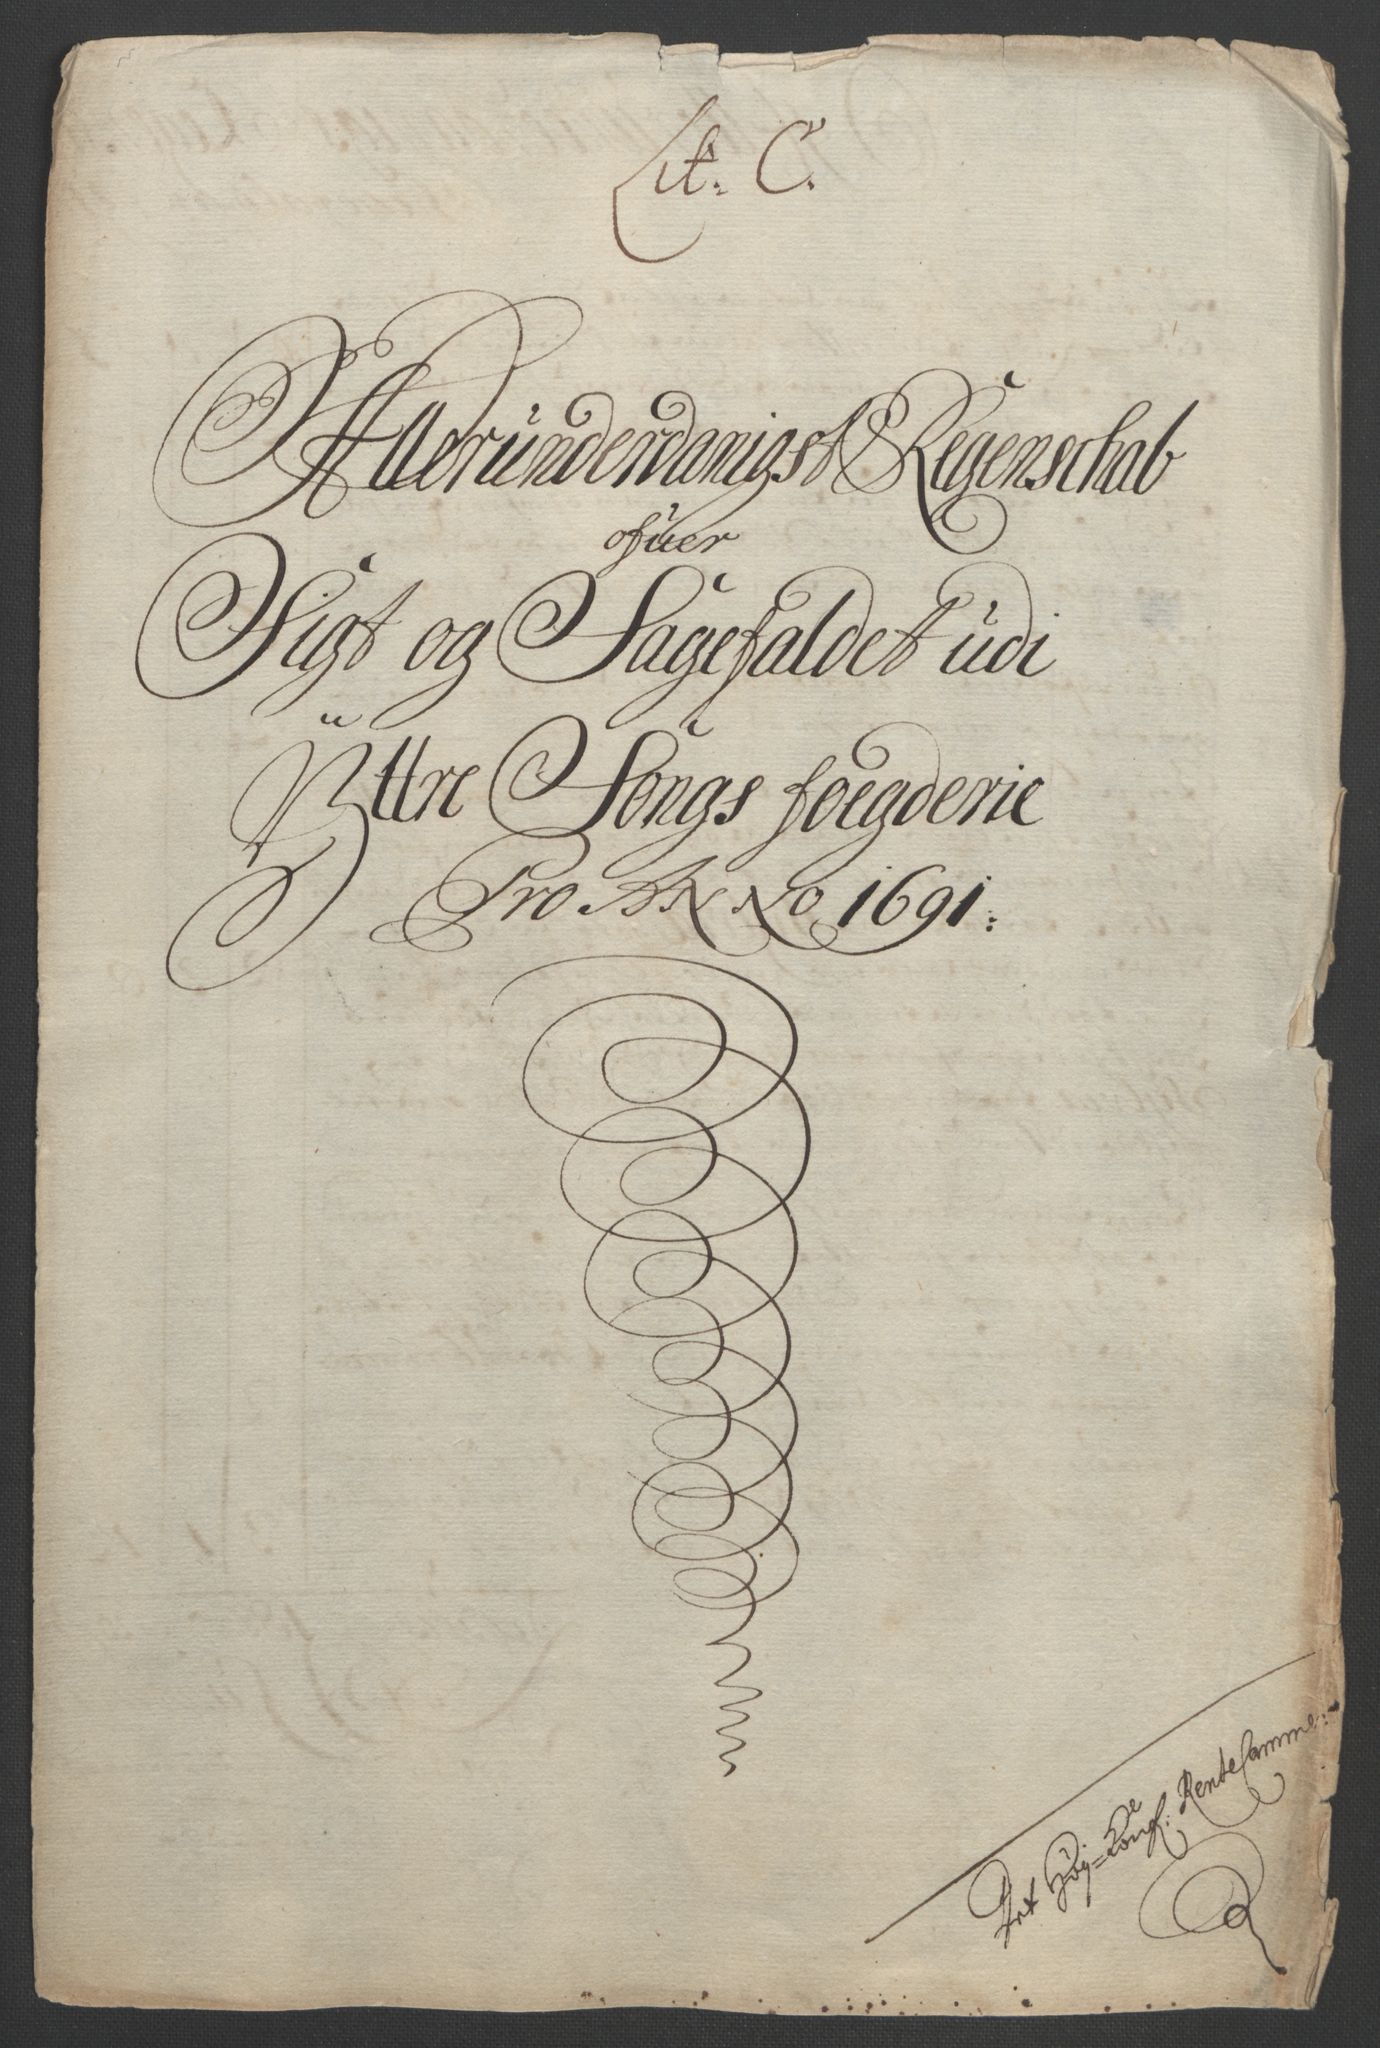 Lit. C.
Alleründerdanigst Regenschab
ofuer
Sigt og Sagefaldet udi
Ÿttre Songs foegderie
Pro ANNo 1691:
Det Höÿ=Kongl: Rente Camme